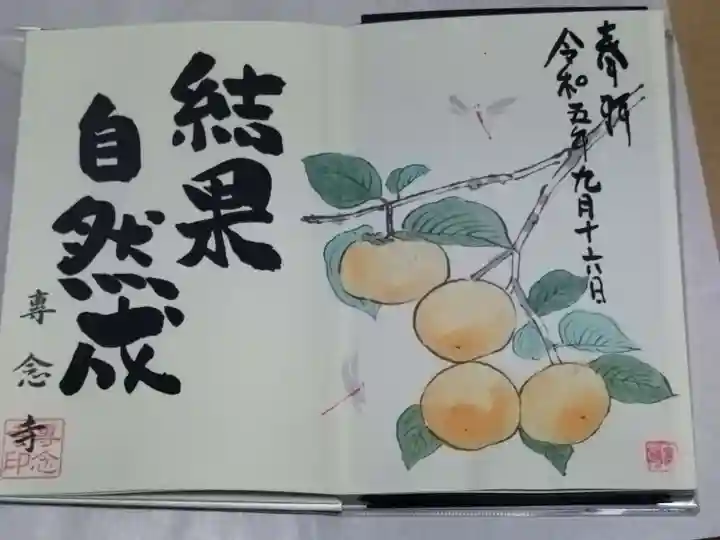 奉拝
令和五年九月十六日
結果
自然成
専念寺
専念寺印